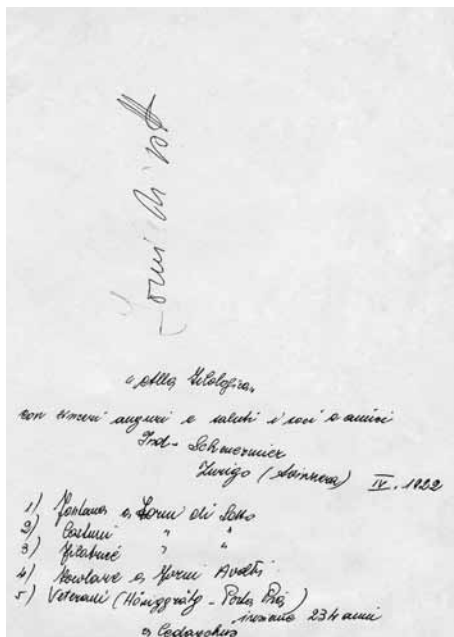 Forni di sott
"Alla Filologica"
con sinceri auguri e saluti i soci e amici
Ind. Scheuermeier
Zurigo (Svizzera) IV. 1922
1) Fontana a Forni di Sotto
2) Costumi " "
3) Filatrice " "
4) Forni Avoltri
5) Veterani (Königgrätz - Porta Pia)
insieme 234 anni
a Cedarchis